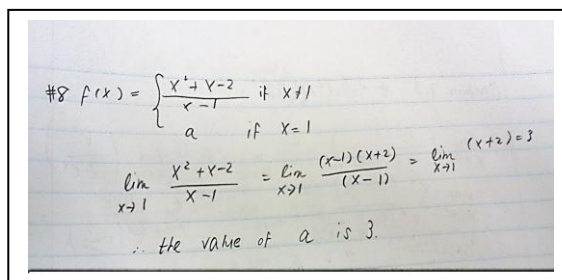 #8 f(x) = { x² + x - 2 / x - 1 if x ≠ 1
a if x = 1
lim x→1 x² + x - 2 / x - 1 = lim x→1 (x-1)(x+2) / (x-1) = lim x→1 (x+2) = 3
∴ the value of a is 3.